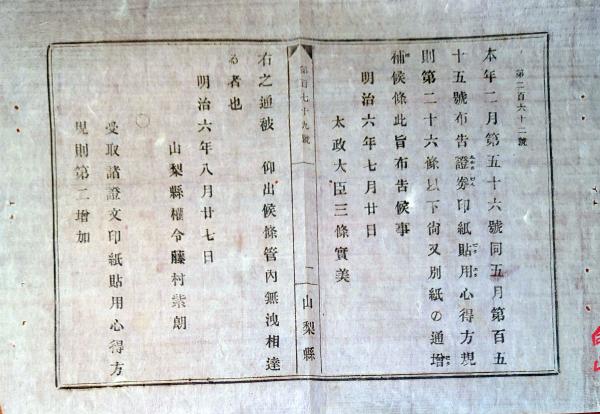 第二百六十二號
本年二月第五十六號同五月第百五
十五號布告證劵印紙貼用心得方規
則第二十六條以下尙又別紙の通增
補候條此旨布告候事
明治六年七月廿日
太政大臣三條實美
第百七十九號
一
山梨縣
右之通被 仰出候條管內無洩相達
る者也
明治六年八月廿七日
山梨縣權令藤村紫朗
○
受取諸證文印紙貼用心得方
規則第二增加